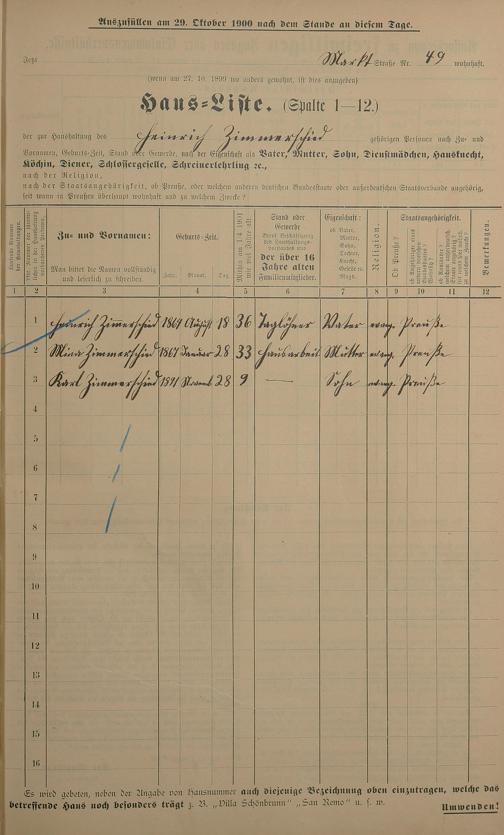 Auszufüllen am 29. Oktober 1900 nach dem Stande an diesem Tage.
Jetzt Markt Straße Nr. 49 wohnhaft.
(wenn am 27. 10. 1899 wo anders gewohnt, ist dies anzugeben)
Haus-Liste. (Spalte 1—12.)
der zur Haushaltung des Heinrich Zimmerschied gehörigen Personen nach Zu- und
Vornamen, Geburts-Zeit, Stand oder Gewerbe, nach der Eigenschaft als Vater, Mutter, Sohn, Dienstmädchen, Hausknecht,
Köchin, Diener, Schlossergeselle, Schreinerlehrling ꝛc.,
nach der Religion,
nach der Staatsangehörigkeit, ob Preuße, oder welchem anderen deutschen Bundesstaate oder außerdeutschen Staatsverbande angehörig,
seit wann in Preußen überhaupt wohnhaft und zu welchem Zwecke?
Zu- und Vornamen:
Man bittet die Namen vollständig
und leserlich zu schreiben.
Geburts-Zeit.
Jahr. Monat. Tag.
Stand oder
Gewerbe
der über 16
Jahre alten
Familienmitglieder.
Eigenschaft:
ob Vater,
Mutter,
Sohn,
Tochter,
Knecht,
Geselle ꝛc.
Magd.
Religion.
Staatsangehörigkeit.
Ob Preuße?
Bemerkungen.
1 2 3 4 5 6 7 8 9 10 11 12
1 Heinrich Zimmerschied 1864 August 18 36 Taglöhner Vater evang. Preuße
2 Mina Zimmerschied 1867 Januar 28 33 Hausarbeit Mutter evang. Preuße
3 Karl Zimmerschied 1891 28 9 — Sohn evang. Preuße
4
5
6
7
8
9
10
11
12
13
14
15
16
Es wird gebeten, neben der Angabe von Hausnummer auch diejenige Bezeichnung oben einzutragen, welche das
betreffende Haus noch besonders trägt z. B. „Villa Schönbrunn" „San Remo" u. s. w.
Umwenden!